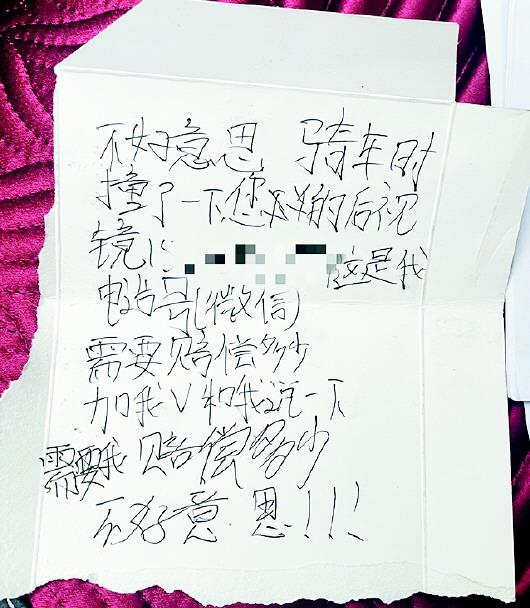 不好意思 骑车时
撞了一下您的后视
镜 1 这是我
电话号(微信)
需要赔偿多少
加我V和我说一下
需要我赔偿多少
不好意思!!!